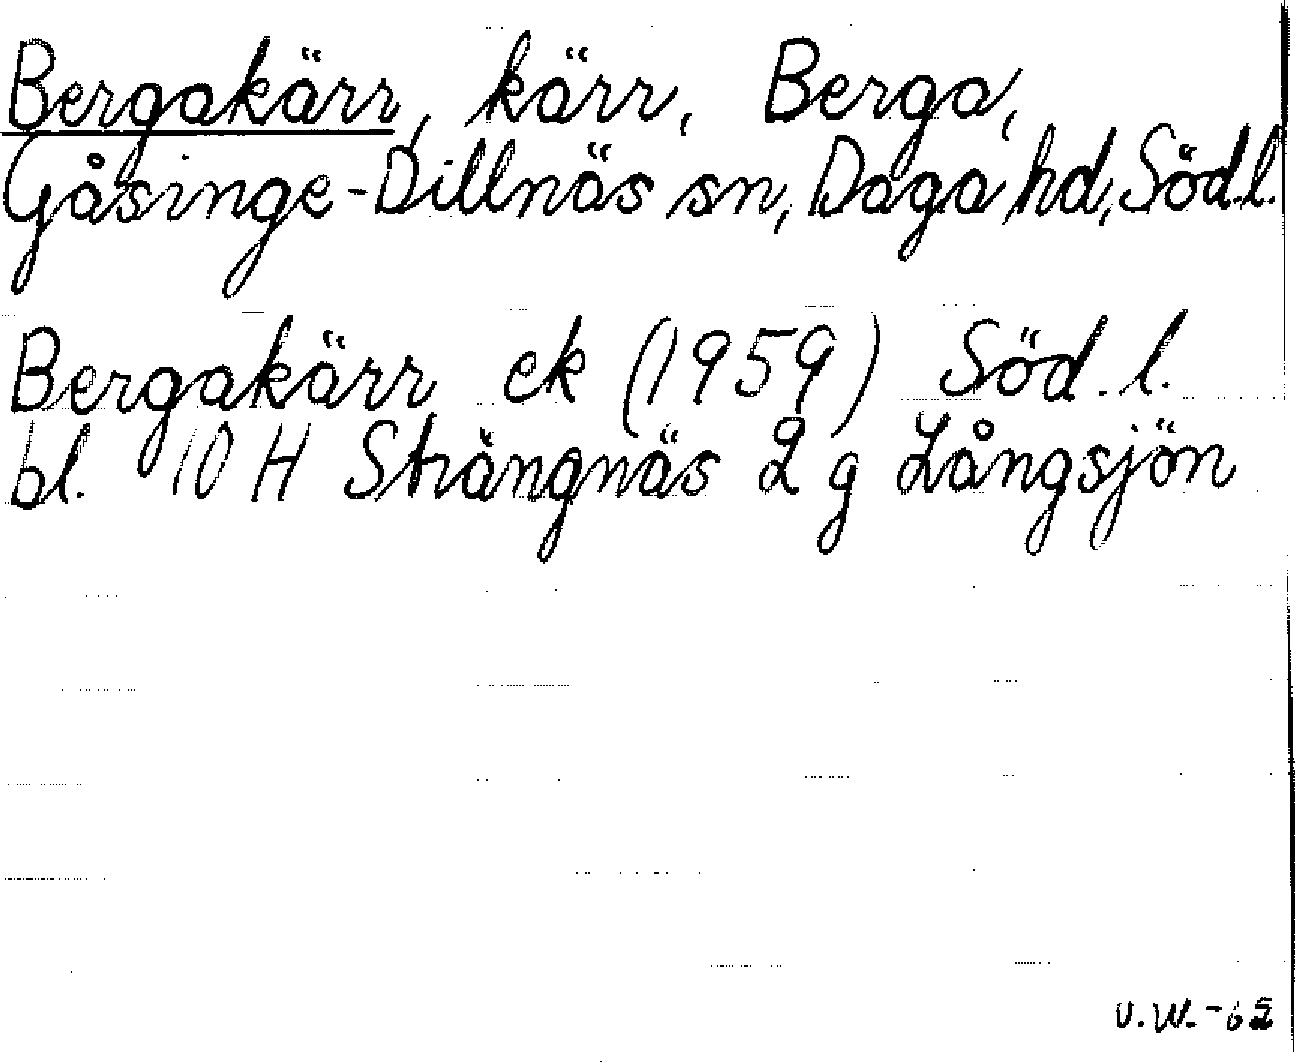 Bergakärr, kärr, Berga,
Gåsinge-Dillnäs sn, Daga hd, Söd.l.
Bergakärr ek (1959) Söd. l.
bl. 10 H Strängnäs 2 g Långsjön
U.W. -62